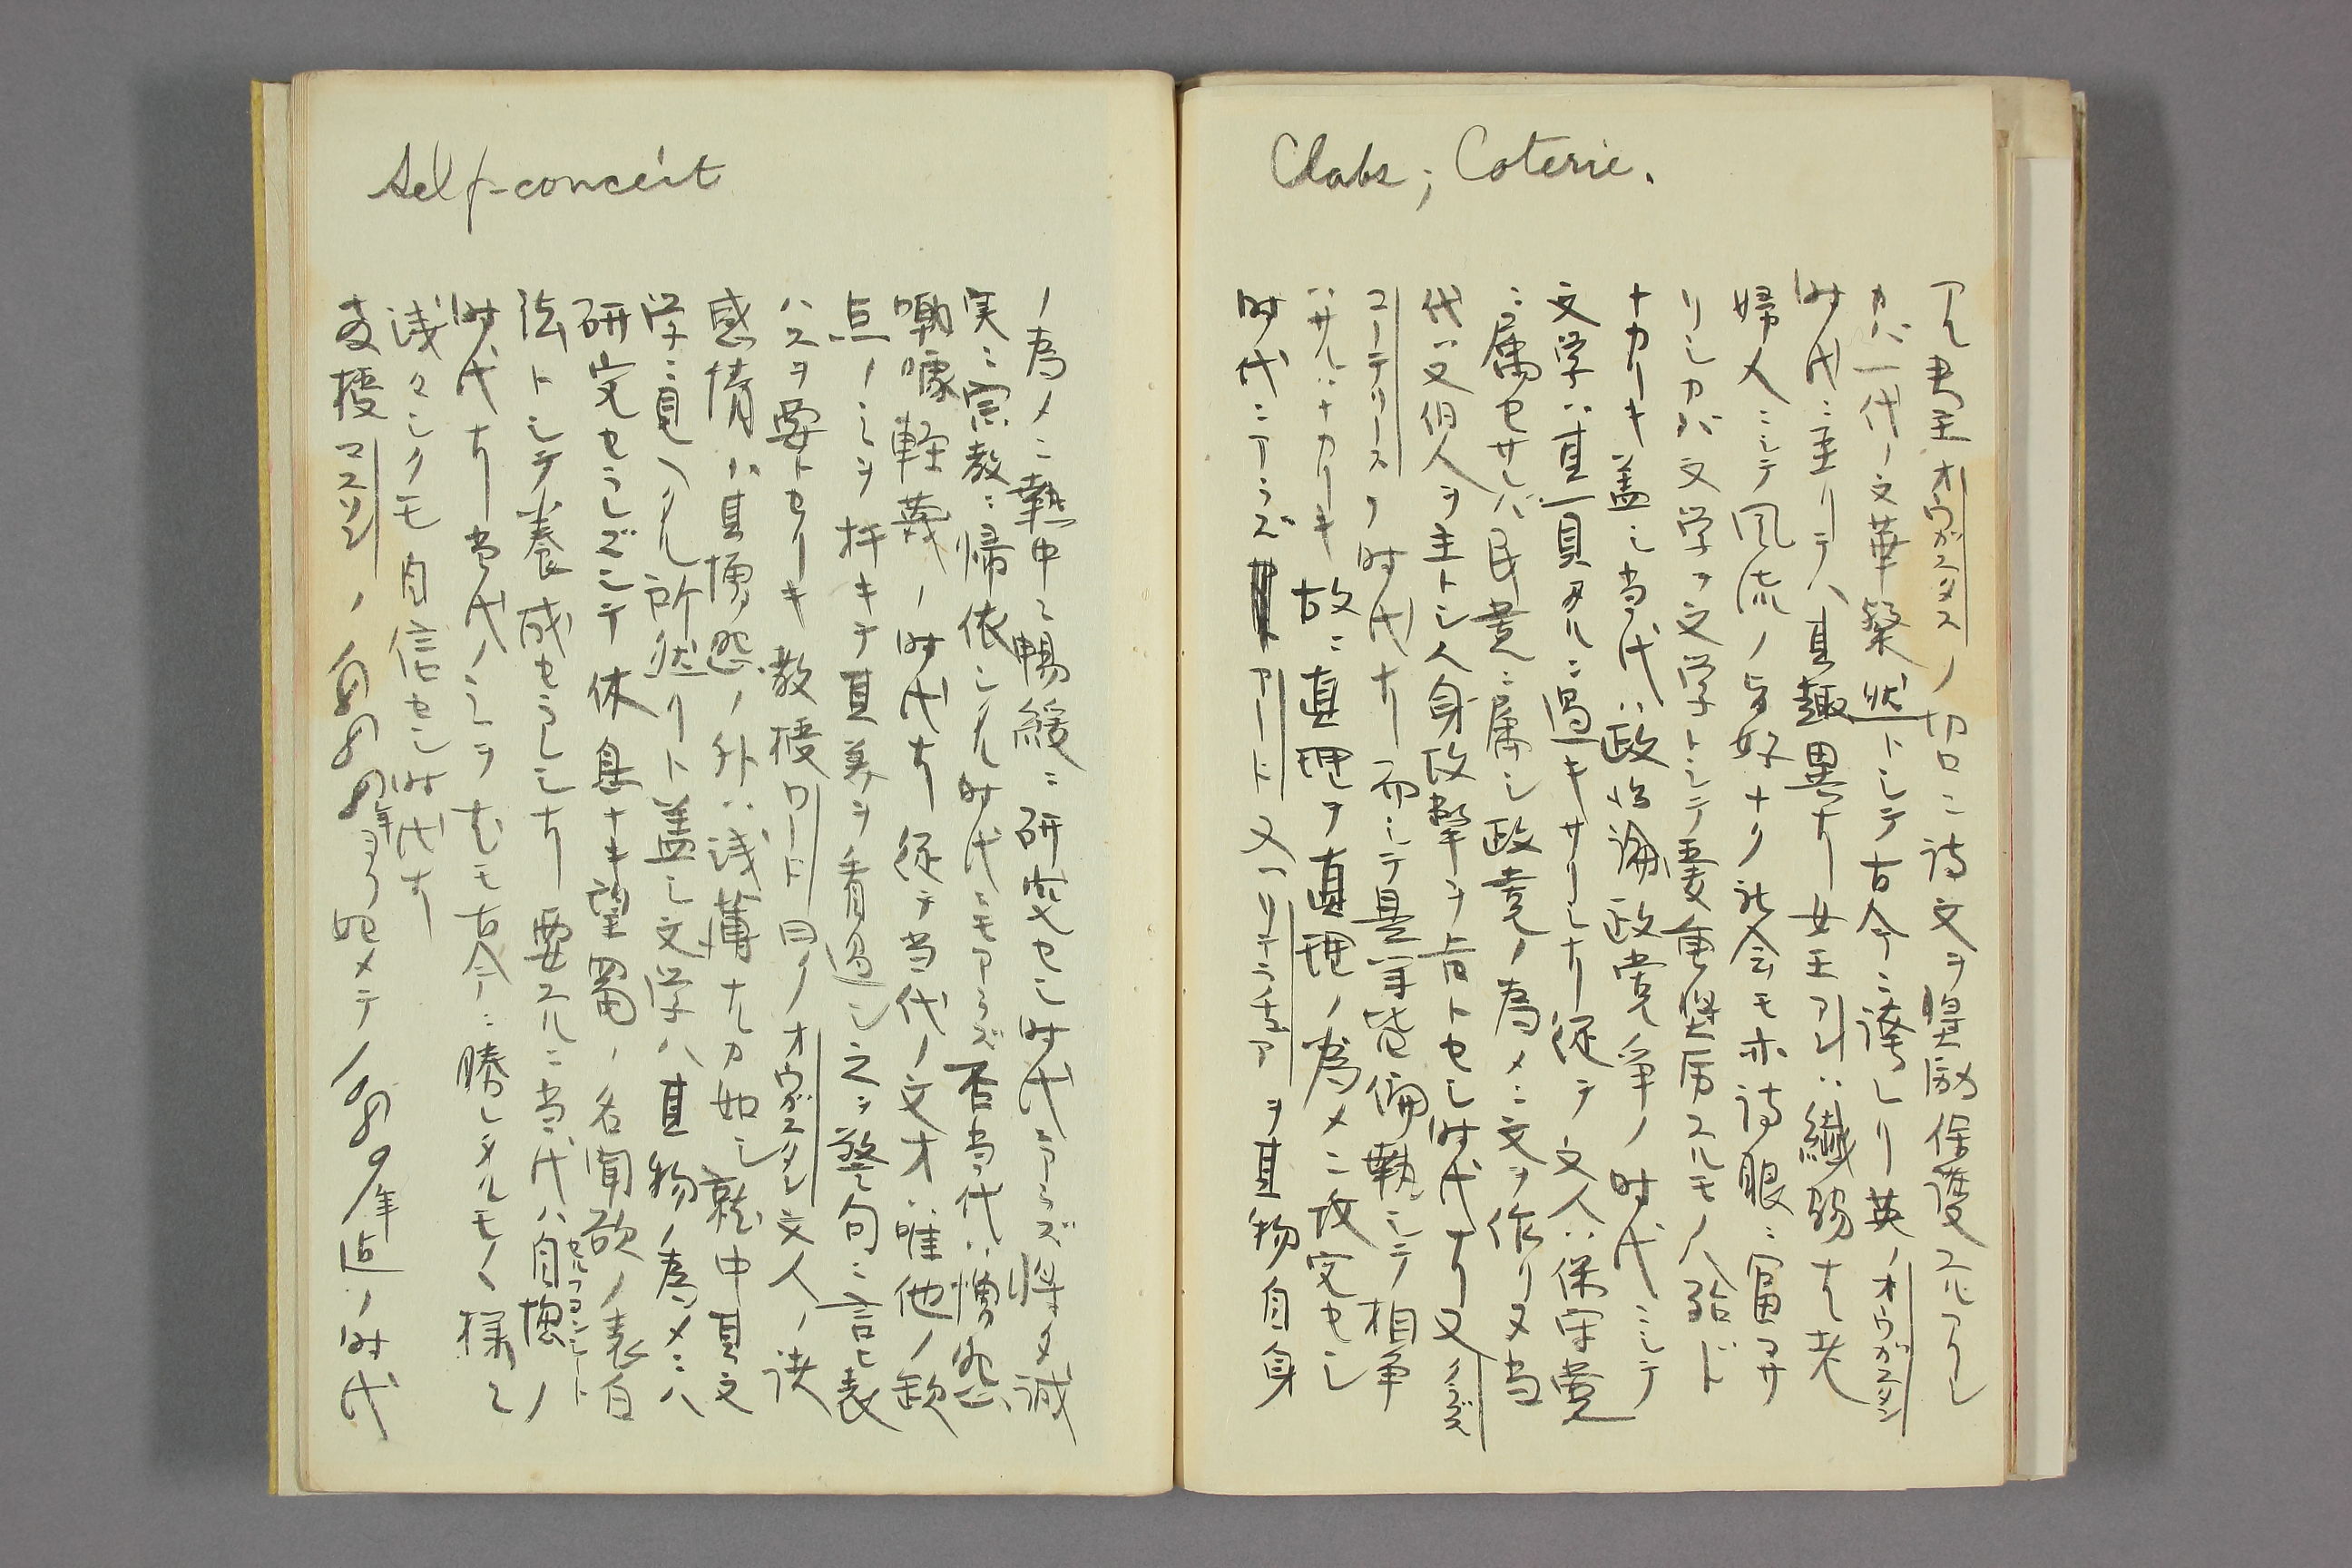 Clubs; Coterie.
君主オウガスタスノ切ニ詩文ヲ奨励保護スルアリシ
カバ一代ノ文華粲然トシテ古今ニ秀レリ英ノオウガスタン
時代ニ至リテハ其趣異ナリ女王アンハ繊弱ナル老
婦人ニシテ風流ノ嗜好ナク社会モ亦詩眼ニ富マサ
リシカバ文学ヲ文学トシテ愛重奨励スルモノ八殆ド
ナカリキ蓋シ当代ハ政治論政党争ノ時代ニシテ
文学ハ其一具タルニ過キサリシナリ従テ文人ハ保守党
ニ属セサレバ民党ニ属シ政党ノ為メニ文ヲ作リヌ当
代ハ又個人ヲ主トシ人身攻撃ヲ旨トセシ時代ナリ又クラブス
コーテリースノ時代ナリ而シテ是等皆偏執ニシテ相争
ハサルハナカリキ故ニ真理ヲ真理ノ為メニ攻究セシ
時代ニアラズアート又ハリテラチュアヲ其物自身
Self-conceit
ノ為メニ熱中シ暢緩ニ研究セシ時代ニアラズ将タ誠
実ニ宗教ニ帰依シタル時代ニモアラズ否当代ハ憎怨
嘲嚎軽蔑ノ時代ナリ従テ当代ノ文才ハ唯他ノ欠
点ノミヲ抨キテ其美ヲ看過シ之ヲ警句ニ言ヒ表
ハスヲ要トセリキ教授ワード曰クオウガスタン文人ノ
感情ハ其憎怨ノ外ハ浅薄ナルカ如シ就中其文
学ニ見ヘタル所然リト蓋シ文学ハ其物ノ為メニハ
研究セラレズシテ休息ナキ望蜀ノ名聞欲ノ表白
法トシテ養成セラレシナリ要スルニ当代ハ自慢ノ
セルフコンシート
時代ナリ当代ノミヲ尤モ古今ニ勝レタルモノノ様ニ
浅々シクモ自信セシ時代ナリ
教授マスソンノ
年ヨリ始メテ
年迠ノ時代